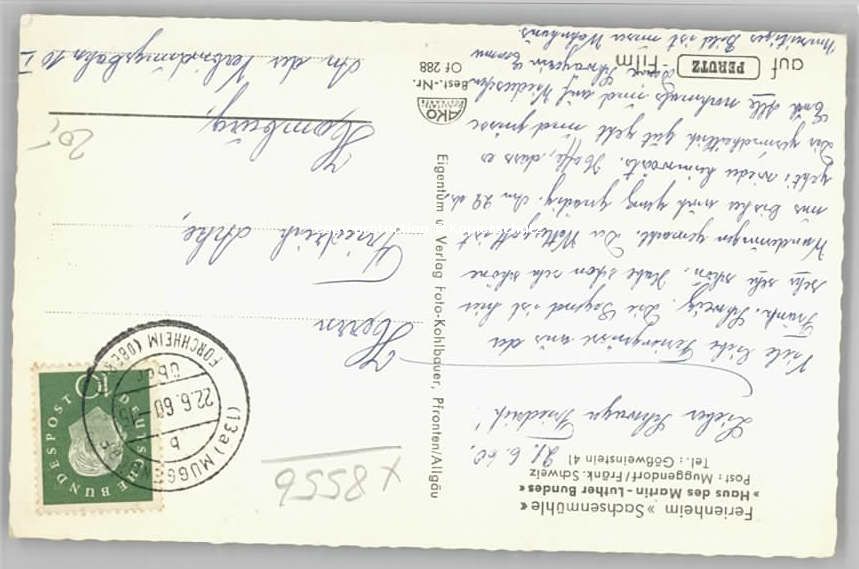 Ferienheim »Sachsenmühle«
»Haus des Martin-Luther Bundes«
Post: Muggendorf/Fränk. Schweiz
Tel.: Gößweinstein 41
21.6.60.
Lieber Schwager Friedrich!
Viele liebe Feriengrüsse aus der
Fränk. Schweiz. Die Gegend ist hier
sehr sehr schön. Habe schon sehr schöne
Wanderungen gemacht. Der Wettergott ist
uns bisher auch ganz gnädig. Am 29. ds.
geht's wieder heimwärts. Hoffe, dass es
Dir gesundheitlich gut geht und grüsse
Euch alle nochmals und auf Wiedersehen
Deine Schwägerin Emma
Umseitiges Bild ist unser Wohnhaus.
Eigentum u. Verlag Foto-Kohlbauer, Pfronten/Allgäu
AKO
Best.-Nr.
Of 288
auf PERUTZ -Film
x 8556
DEUTSCHE BUNDESPOST
10
(13a) MUGGEN
über
FORCHHEIM (OBER
22.6.60
b
Herrn
Friedrich
Hamburg,
An der Verbindungsbahn 10 I
20,-